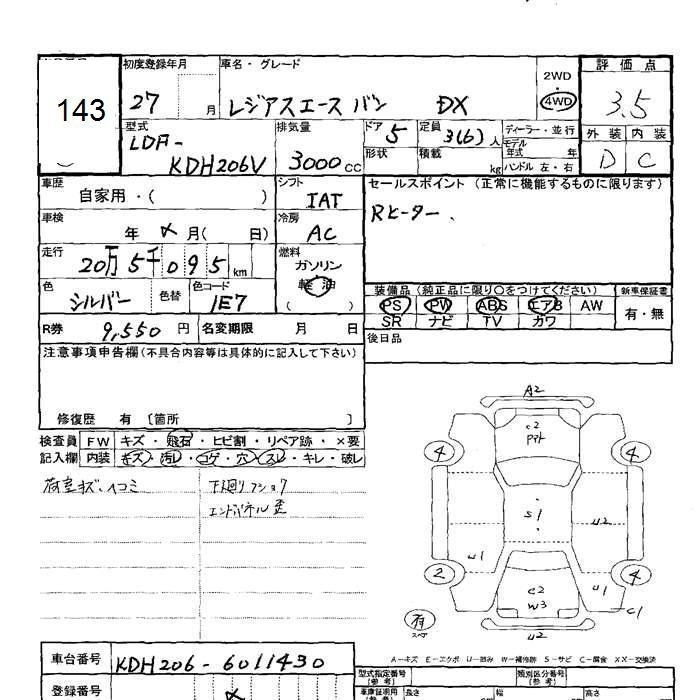 143
初度登録年月
車名・グレード
2WD
・
4WD
評価点
27 月
レジアスエース バン DX
3.5
型式
排気量
ドア 5
定員 3(6) 人
ディーラー・並行
モデル
年式 年
外装
内装
LDF-
KDH206V
3000 cc
形状
積載 kg
ハンドル 左・右
D
C
車歴
自家用・( )
シフト
IAT
セールスポイント(正常に機能するものに限ります)
Rヒーター、
車検
年 〆 月( 日)
冷房
AC
走行
20万5千095km
燃料
ガソリン
軽油
( )
色
シルバー
色替
色コード
1E7
装備品(純正品に限り〇をつけてください)
新車保証書
PS PW ABS エアB AW
有・無
SR ナビ TV カワ
R券 9,550 円
名変期限 月 日
後日品
注意事項申告欄(不具合内容等は具体的に記入して下さい)
修復歴 有 〔箇所 〕
検査員
記入欄
FW キズ・飛石・ヒビ割・リペア跡・×要
内装 キズ・汚レ・コゲ・穴・スレ・キレ・破レ
荷室キズ、ヘコミ
下廻りフショク
エンドパネル歪
A2
C2
4
4
S1
U2
U1
2
C2
W3
U1
4
C1
有
スペア
U2
A-キズ E-エクボ U-凹み W-補修跡 S-サビ C-腐食 XX-交換済
車台番号 KDH206-6011430
型式指定番号
(参考)
類別区分番号
(参考)
登録番号 〆
車庫証明用
(参考)
長さ
幅
高さ